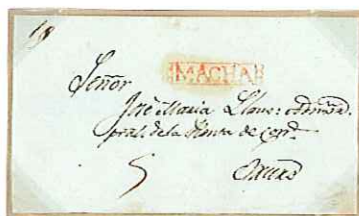 18
MACHA
Señor
José Maria Llano: Adminisd.
pral. de la Renta de corrs.
5 Oruro